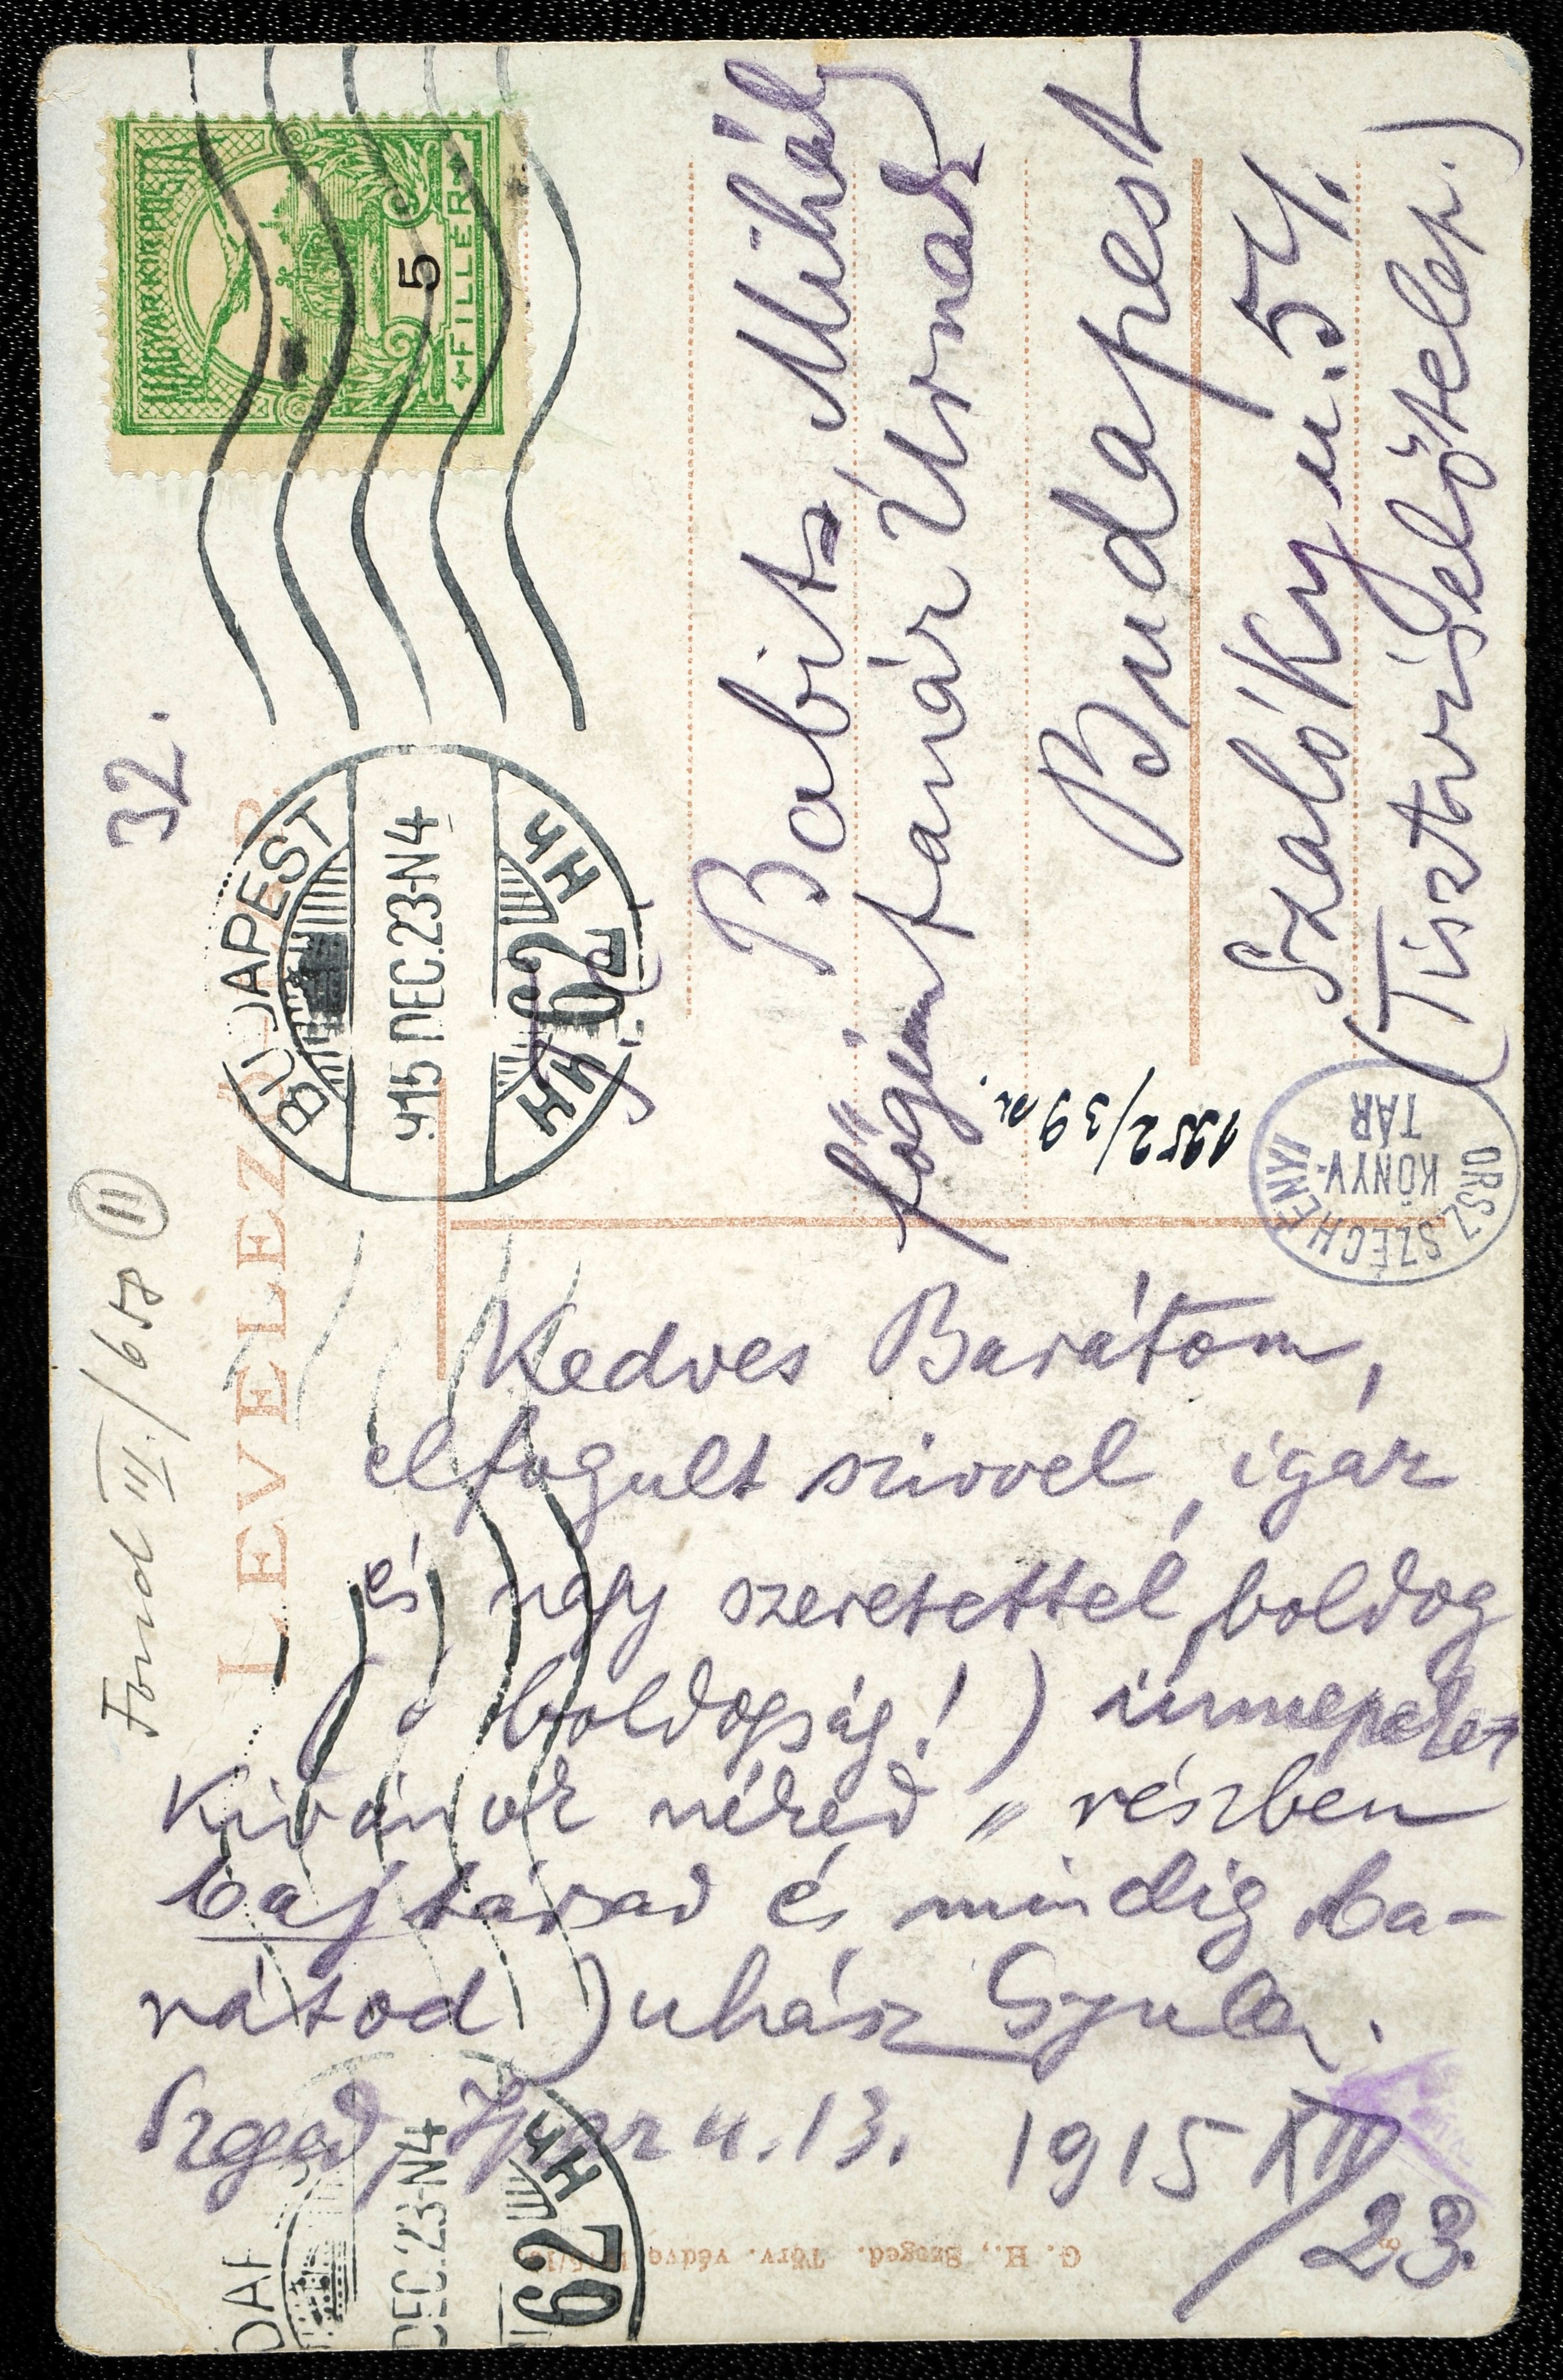 MAGYAR KIR. POSTA
5
FILLÉR
32.
BUDAPEST
915 DEC.23-N4
62
Fond III./658 II
LEVELEZŐ-LAP.
Babits Mihály
főgimn tanár Úrnak
Budapest
Szalóky u. 54.
(Tisztviselőtelep.)
1952/39
ORSZ. SZÉCHENYI
KÖNYV-
TÁR
Kedves Barátom,
elfogult szivvel, igaz
és nagy szeretettel boldog
(ó boldogság!) ünnepeket
kivánok néked, részben
bajtársad és mindig ba-
rátod Juhász Gyula.
Szged, u. 13. 1915 XII/23.
DEC.23-N4
62
G. H., Szeged. Törv. védve